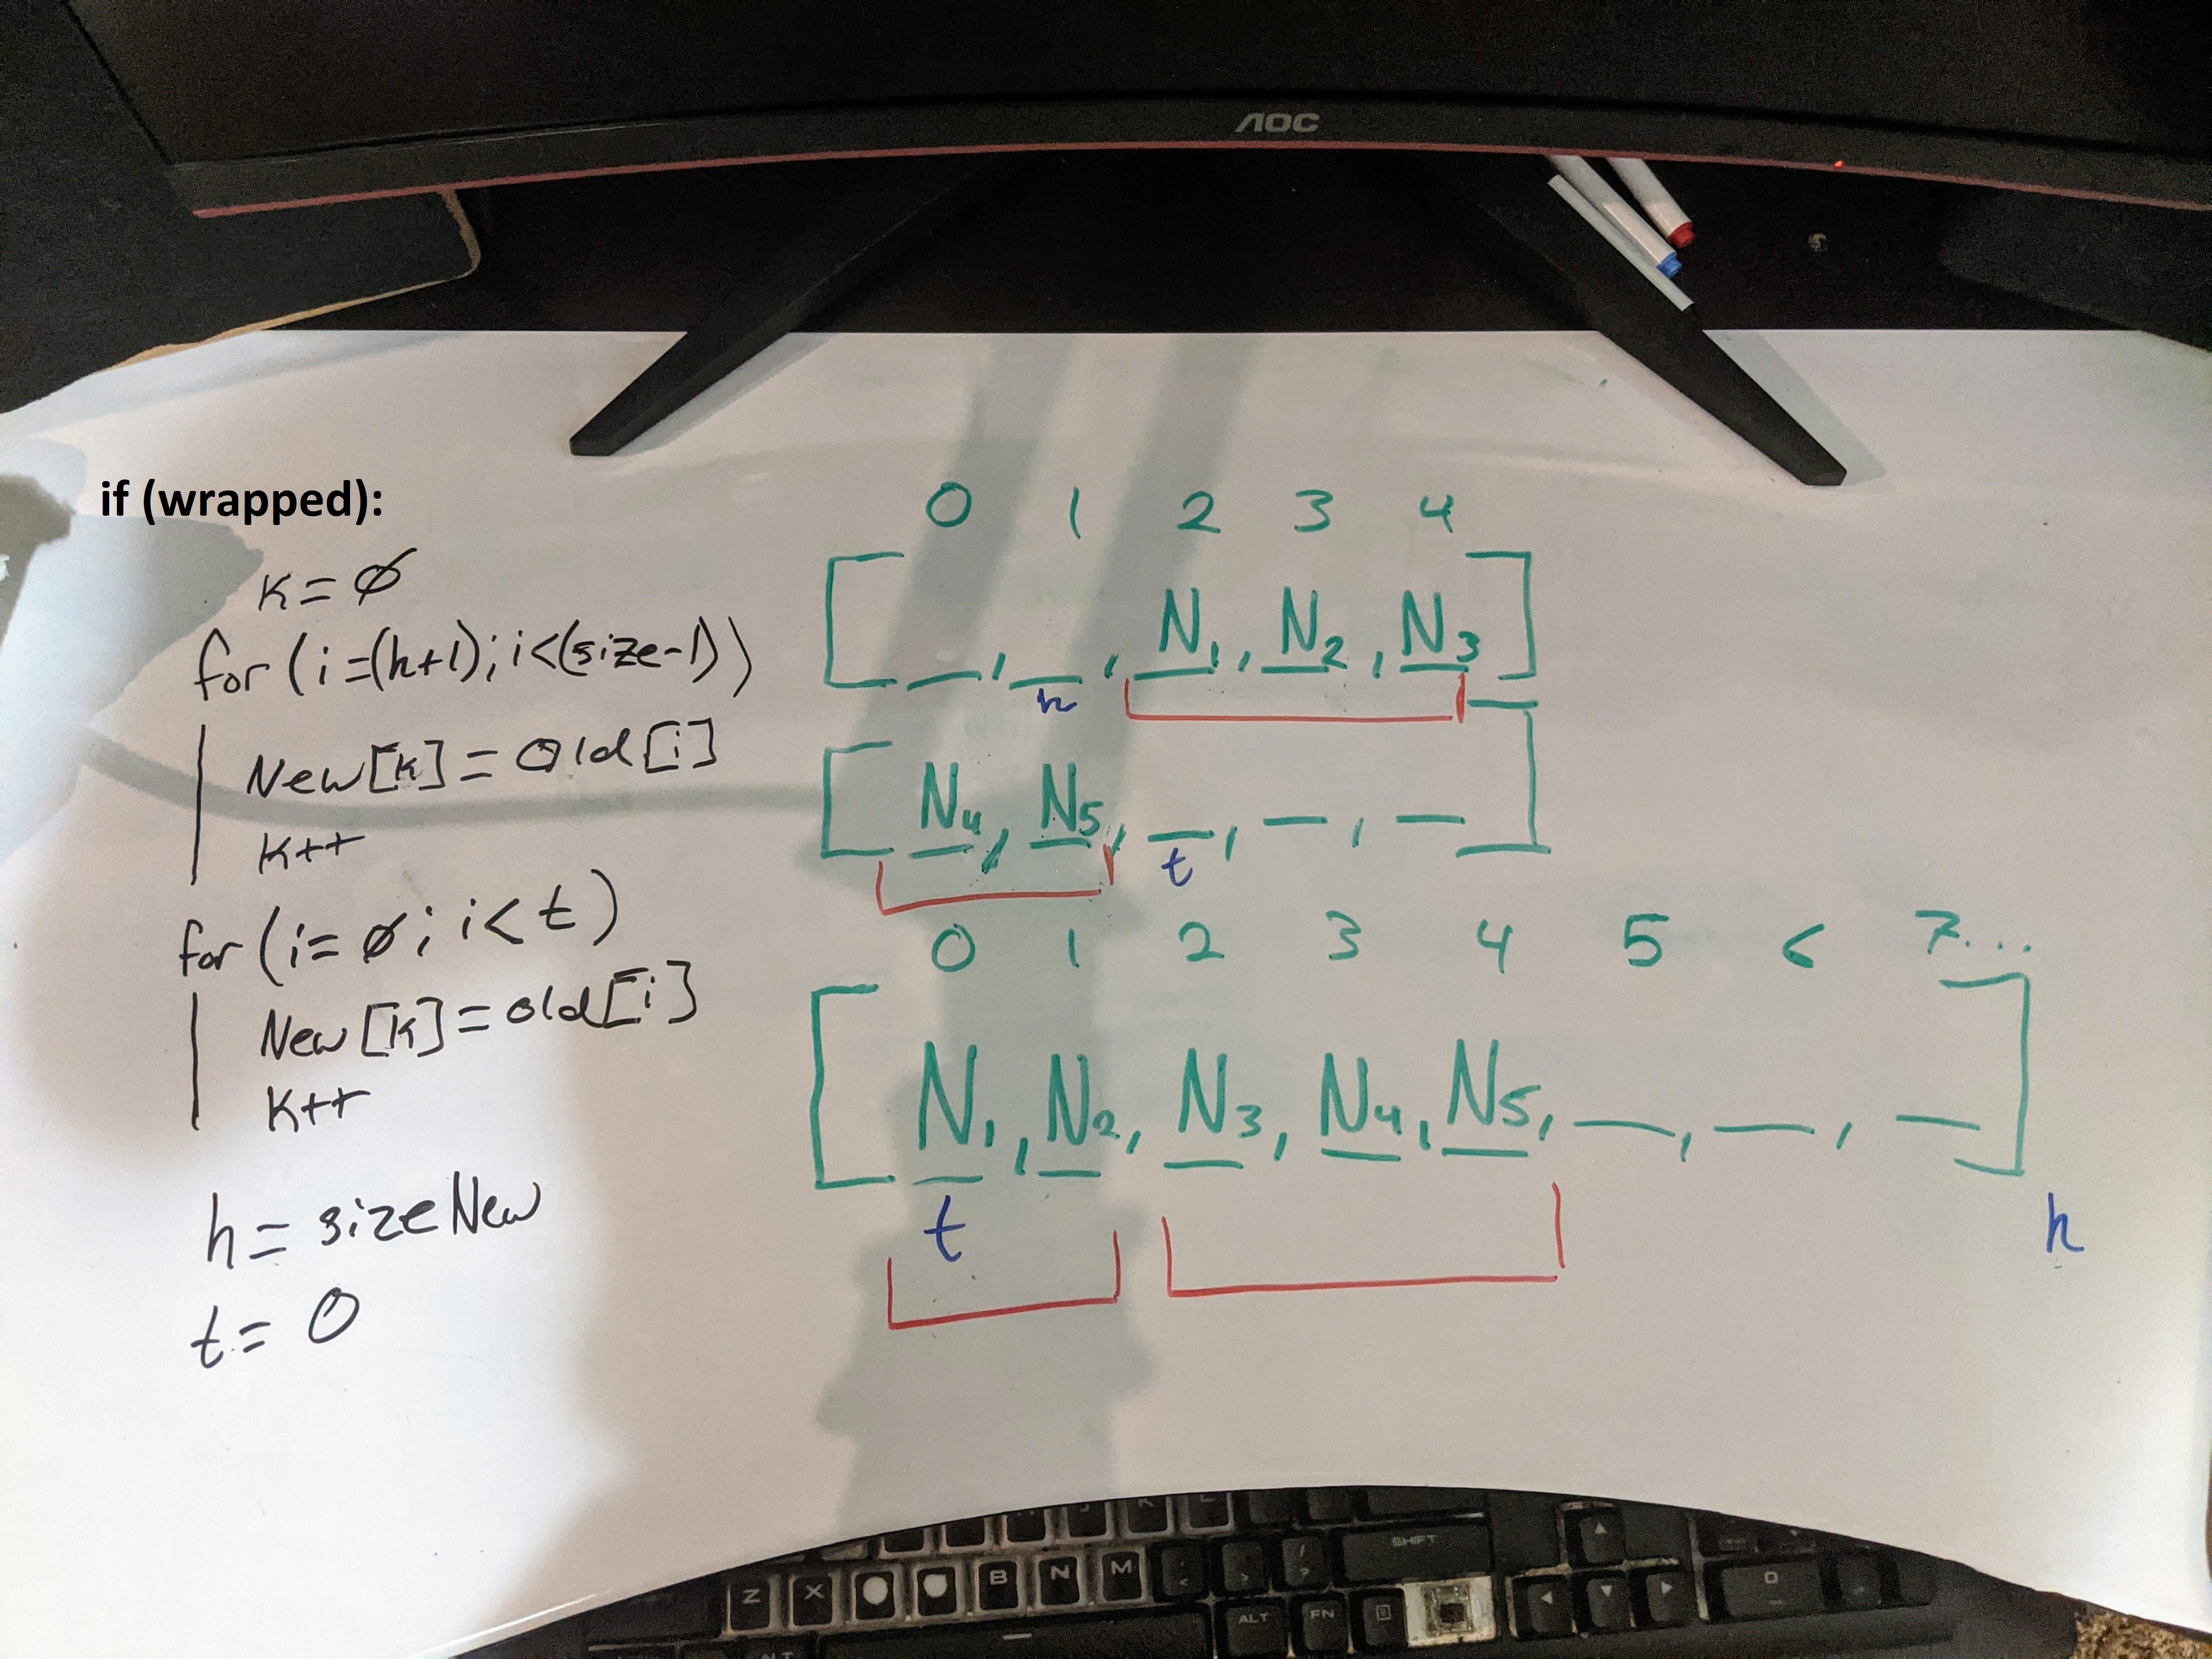 AOC
if (wrapped):
K = ∅
for (i=(h+1); i<(size-1))
New[k] = Old[i]
K++
for (i= ∅; i< t)
New [k] = old[i]
K++
h = sizeNew
t = 0
0 1 2 3 4
[ _, _, N1, N2, N3 ]
h
[ N4, N5, _, _, _ ]
t
0 1 2 3 4 5 6 7...
[ N1, N2, N3, N4, N5, _, _, _ ]
t h
SHIFT
Z X B N M < > ? /
ALT FN